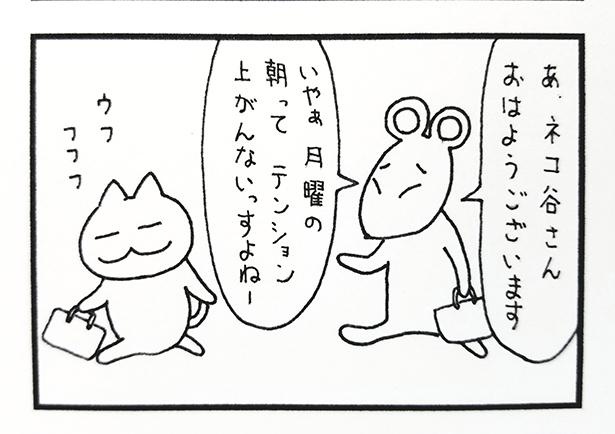 あ、ネコ谷さん
おはようございます
いやぁ 月曜の
朝って テンション
上がんないっすよねー
ウフ
フフフ